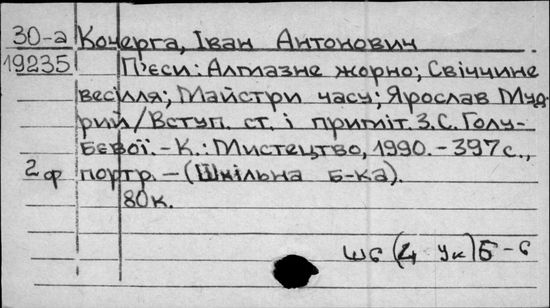 30-а Кочерга, Іван Антонович
19235 П'єси: Алмазне жорно; Свіччине
весілля; Майстри часу; Ярослав Муд-
рий/Вступ. ст. і приміт. З.С. Голу-
бєвої. - К.: Мистецтво, 1990. - 397с.,
2ф портр. - (Шкільна б-ка).
80к.
(4 Ук)